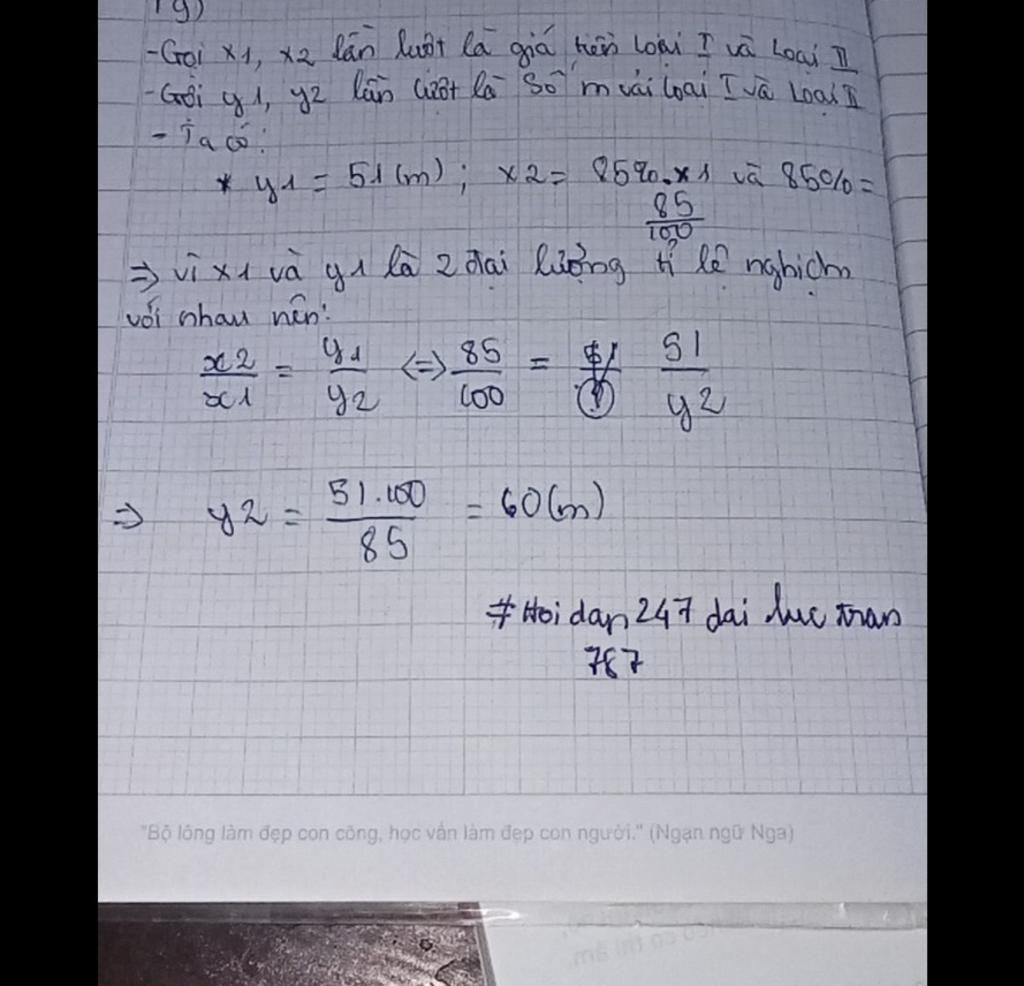 19)
-Gọi x1, x2 lần lượt là giá tiền loại I và loại II
-Gọi y1, y2 lần lượt là số m vải loại I và loại II
- Ta có:
* y1 = 51 (m) ; x2 = 85%.x1 và 85% =
85/100
=> vì x1 và y1 là 2 đại lượng tỉ lệ nghịch
với nhau nên:
x2/x1 = y1/y2 <=> 85/100 = 51/y2
=> y2 = 51.100/85 = 60(m)
#Hoidap247 dai luc tran
787
"Bộ lông làm đẹp con công, học vấn làm đẹp con người." (Ngạn ngữ Nga)